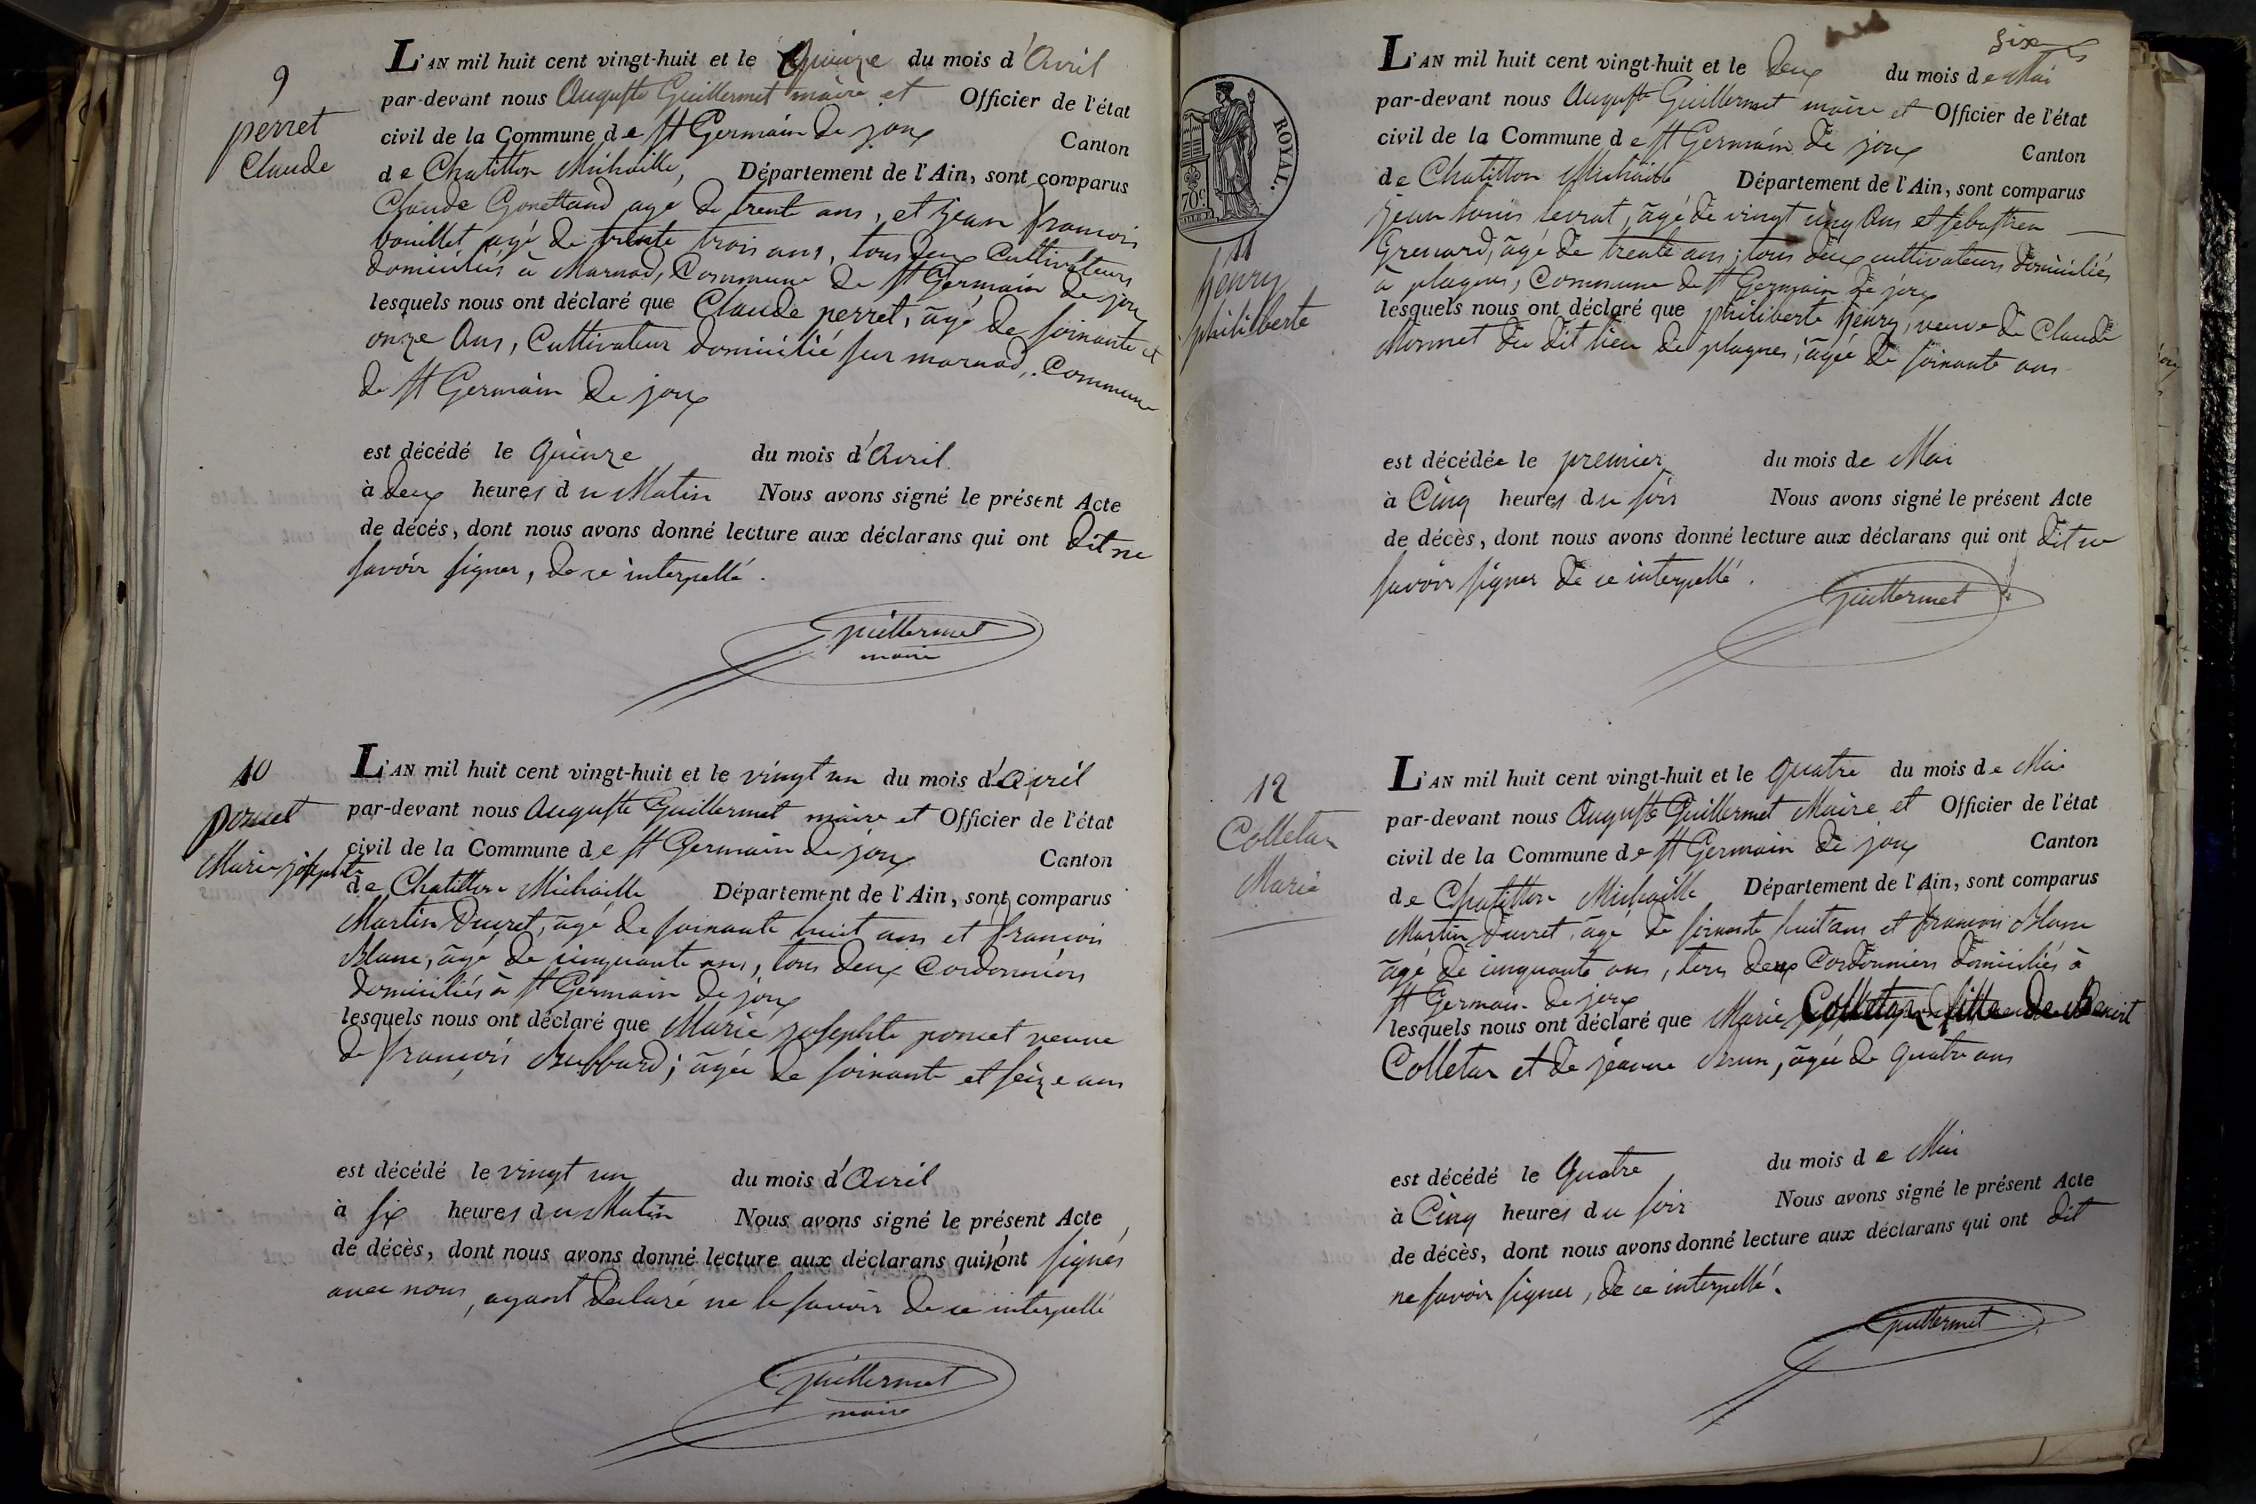 9
perret
Claude
L'AN mil huit cent vingt-huit et le Quinze du mois d'Avril
par-devant nous Auguste Guillermet maire et Officier de l'état
civil de la Commune de St Germain de joux Canton
de Chatillon Michaille, Département de l'Ain, sont comparus
Claude Gonettand agé de trente ans, et jean françois
bouillet agé de trente trois ans, tous deux Cultivateurs
domiciliés à Marnod, Commune de St Germain de joux
lesquels nous ont déclaré que Claude perret, âgé de soixante et
onze Ans, Cultivateur domicilié sur marnod, Commune
de St Germain de joux
est décédé le Quinze du mois d'Avril
à deux heures du Matin Nous avons signé le présent Acte
de décés, dont nous avons donné lecture aux déclarans qui ont dit ne
savoir signer, de ce interpellé.
Guillermet
maire
10
poncet
Marie josephte
L'AN mil huit cent vingt-huit et le vingt un du mois d'Avril
par-devant nous Auguste Guillermet maire et Officier de l'état
civil de la Commune de St Germain de joux Canton
de Chatillon Michaille Département de l'Ain, sont comparus
Martin Ducret, âgé de soixante huit ans et françois
Blanc, âgé de cinquante ans, tous deux Cordonniers
domiciliés à St Germain de joux
lesquels nous ont déclaré que Marie josephte poncet veuve
de françois Buffard; âgée de soixante et seize ans
est décédé le vingt un du mois d'Avril
à six heures du Matin Nous avons signé le présent Acte
de décès, dont nous avons donné lecture aux déclarans qui n'ont signés
avec nous, ayant déclaré ne le savoir de ce interpellé
Guillermet
maire
six
ROYAL.
70c.
11
henry
philiberte
L'AN mil huit cent vingt-huit et le deux du mois de Mai
par-devant nous Auguste Guillermet maire et Officier de l'état
civil de la Commune de St Germain de joux Canton
de Chatillon Michaille Département de l'Ain, sont comparus
jean louis sevrat, âgé de vingt cinq Ans et sebastien
Grenard, âgé de trente ans; tous deux cultivateurs domiciliés
à plagnes, Commune de St Germain de joux
lesquels nous ont déclaré que philiberte henry, veuve de Claude
Monnet du dit lieu de plagnes, âgée de soixante ans
est décédée le premier du mois de Mai
à Cinq heures du soir Nous avons signé le présent Acte
de décès, dont nous avons donné lecture aux déclarans qui ont dit ne
savoir signer de ce interpellé.
Guillermet
12
Colletaz
Marie
L'AN mil huit cent vingt-huit et le Quatre du mois de Mai
par-devant nous Auguste Guillermet Maire et Officier de l'état
civil de la Commune de St Germain de joux Canton
de Chatillon Michaille Département de l'Ain, sont comparus
Martin Ducret, âgé de soixante huit ans et françois Blanc
âgé de cinquante ans, tous deux Cordonniers domiciliés à
St Germain de joux
lesquels nous ont déclaré que Marie Colletaz fille de Benoit
Colletaz et de jeanne Brun, âgée de quatre ans
est décédé le Quatre du mois de Mai
à Cinq heures du soir Nous avons signé le présent Acte
de décès, dont nous avons donné lecture aux déclarans qui ont dit
ne savoir signer, de ce interpellé.
Guillermet